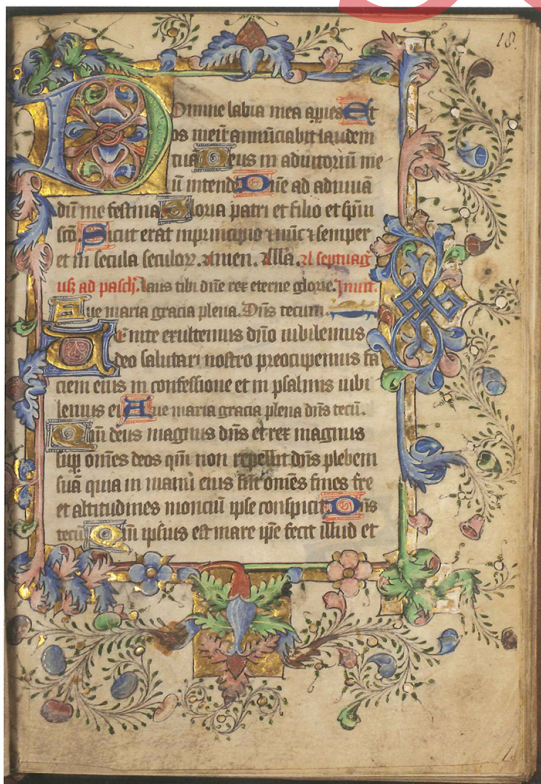 18.
Domine labia mea aperies Et
os meū annūciabit laudem
tuā Deus in adiutoriū me
ū intende Dn̄e ad adiuuā
dū me festina Gloria patri et filio et sp̄ui
scō Sicut erat in principio ⁊ nūc ⁊ semper
et in secula seculoꝝ. Amen. Alla. A septuag
usꝫ ad pasch. laus tibi dn̄e rex eterne glorie. Inuit.
Aue maria gracia plena. Dn̄s tecum.
Venite exultemus dn̄o iubilemus
deo salutari nostro preocupemus fa
ciem eius in confessione et in psalmis iubi
lemus ei Aue maria gracia plena dn̄s tecū.
Qm̄ deus magnus dn̄s et rex magnus
suꝑ om̄es deos qm̄ non repellit dn̄s plebem
suā quia in manū eius sūt om̄es fines t̄re
et altitudines monciū ipse conspicit Dn̄s
tecū Qm̄ ipsius est mare ip̄e fecit illud et